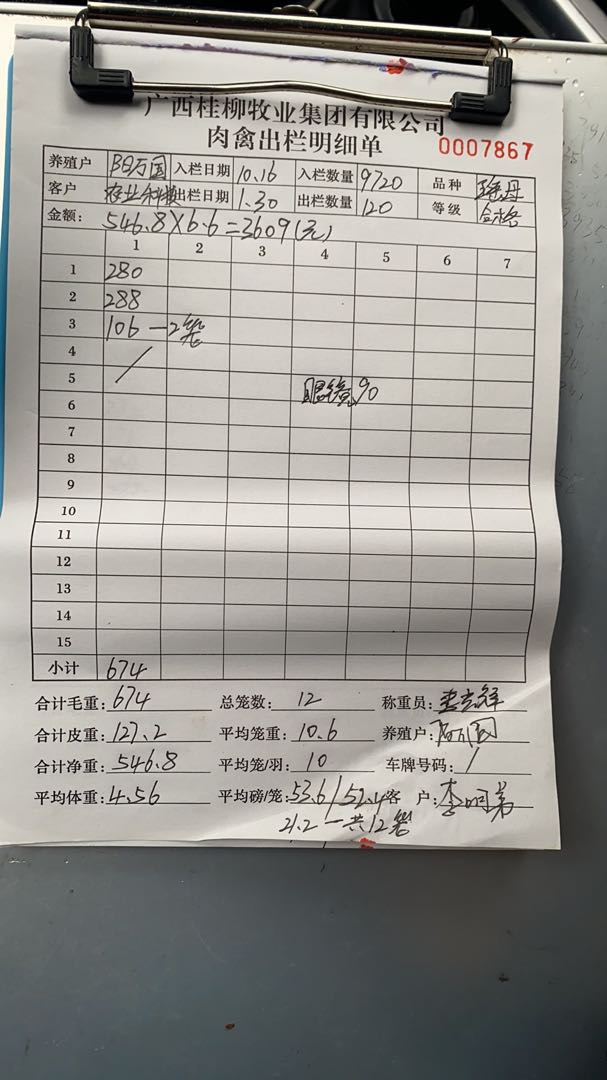 广西桂柳牧业集团有限公司
肉禽出栏明细单 0007867
养殖户 阳万国 入栏日期 10.16 入栏数量 9720 品种
客户 出栏日期 1.30 出栏数量 120 等级 合格
金额: 546.8×6.6=3609(元)
1 2 3 4 5 6 7
1 280
2 288
3 106－2笼
4
5
6 眼镜90
7
8
9
10
11
12
13
14
15
小计 674
合计毛重: 674 总笼数: 12 称重员:
合计皮重: 127.2 平均笼重: 10.6 养殖户: 阳万国
合计净重: 546.8 平均笼/羽: 10 车牌号码: /
平均体重: 4.56 平均磅/笼: 53.6/52.4 客 户: 李明弟
21.2一共12笼